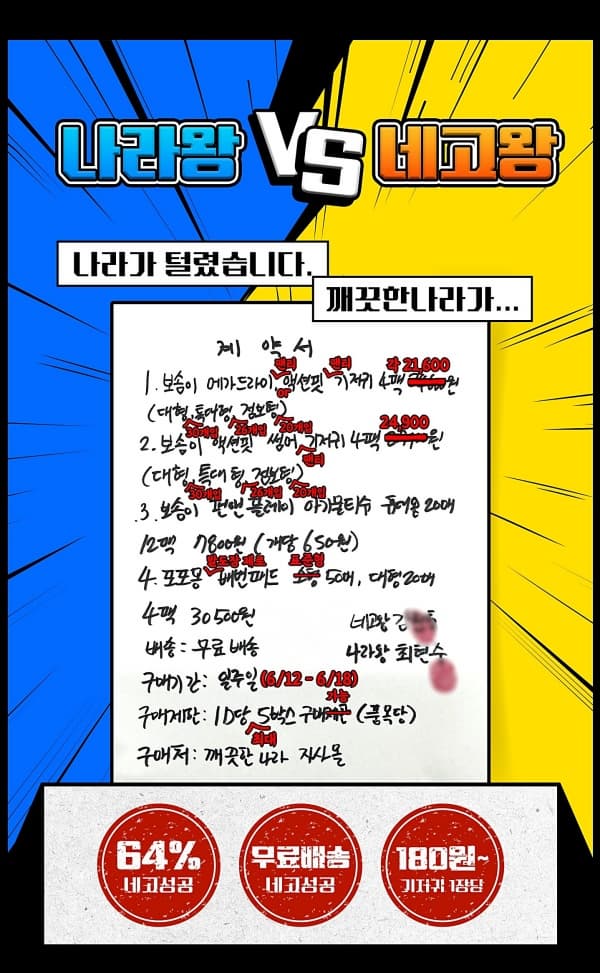 나라왕 VS 네고왕
나라가 털렸습니다.
깨끗한나라가...
계약서
팬티 팬티 각 21,600
1. 보솜이 메가드라이 액션핏 기저귀 4팩 원
or
(대형, 특대형, 점보형)
30개입 26개입 20개입 24,900
2. 보솜이 액션핏 썸머 기저귀 4팩 원
팬티
(대형, 특대형, 점보형)
30개입 26개입 20개입
3. 보솜이 펀앤플레이 아기물티슈 휴대용 20매
12팩 7800원 (개당 650원)
발도장 제로 표준형
4. 포포몽 배변패드 소동 50매, 대형 20매
4팩 30500원
네고왕 김
배송: 무료배송
나라왕 최현수
구매기간: 일주일 (6/12 - 6/18)
가능
구매제한: ID당 5박스 구매 (품목당)
최대
구매처: 깨끗한 나라 자사몰
64% 네고성공
무료배송 네고성공
180원~ 기저귀 1장당